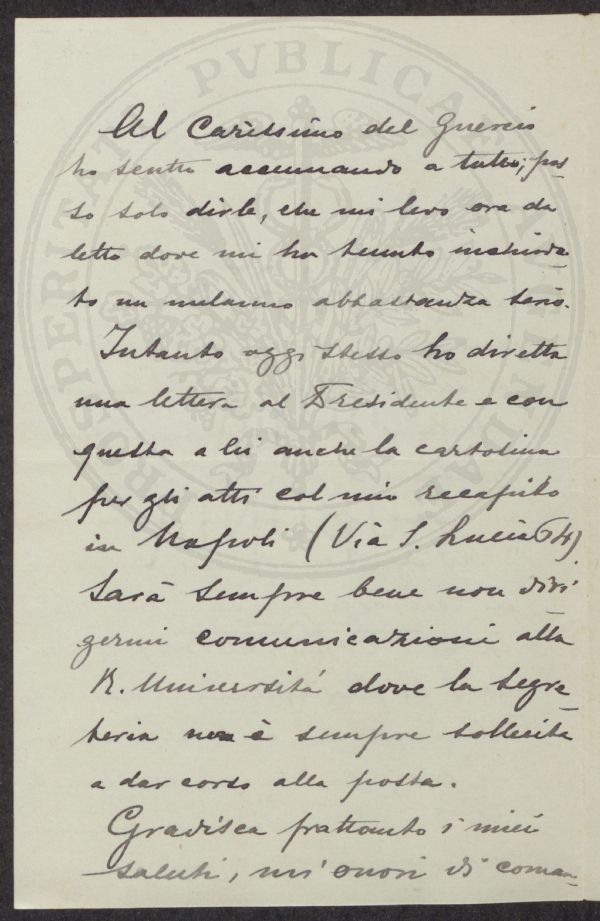 PVBLICA
PROSPERITAT
Al Carissimo del Guercio
ho scritto accennando a tutto; pos
so solo dirle, che mi levo ora da
letto dove mi ha tenuto inchioda-
to un malanno abbastanza serio.
Intanto oggi stesso ho diretta
una lettera al Presidente e con
questa a lei anche la cartolina
per gli atti col mio recapito
in Napoli (Via S. Lucia 64)
Sarà sempre bene non diri
germi comunicazioni alla
R. Università dove la segre-
teria non è sempre sollecita
a dar corso alla posta.
Gradisca frattanto i miei
saluti, mi onori di coman-